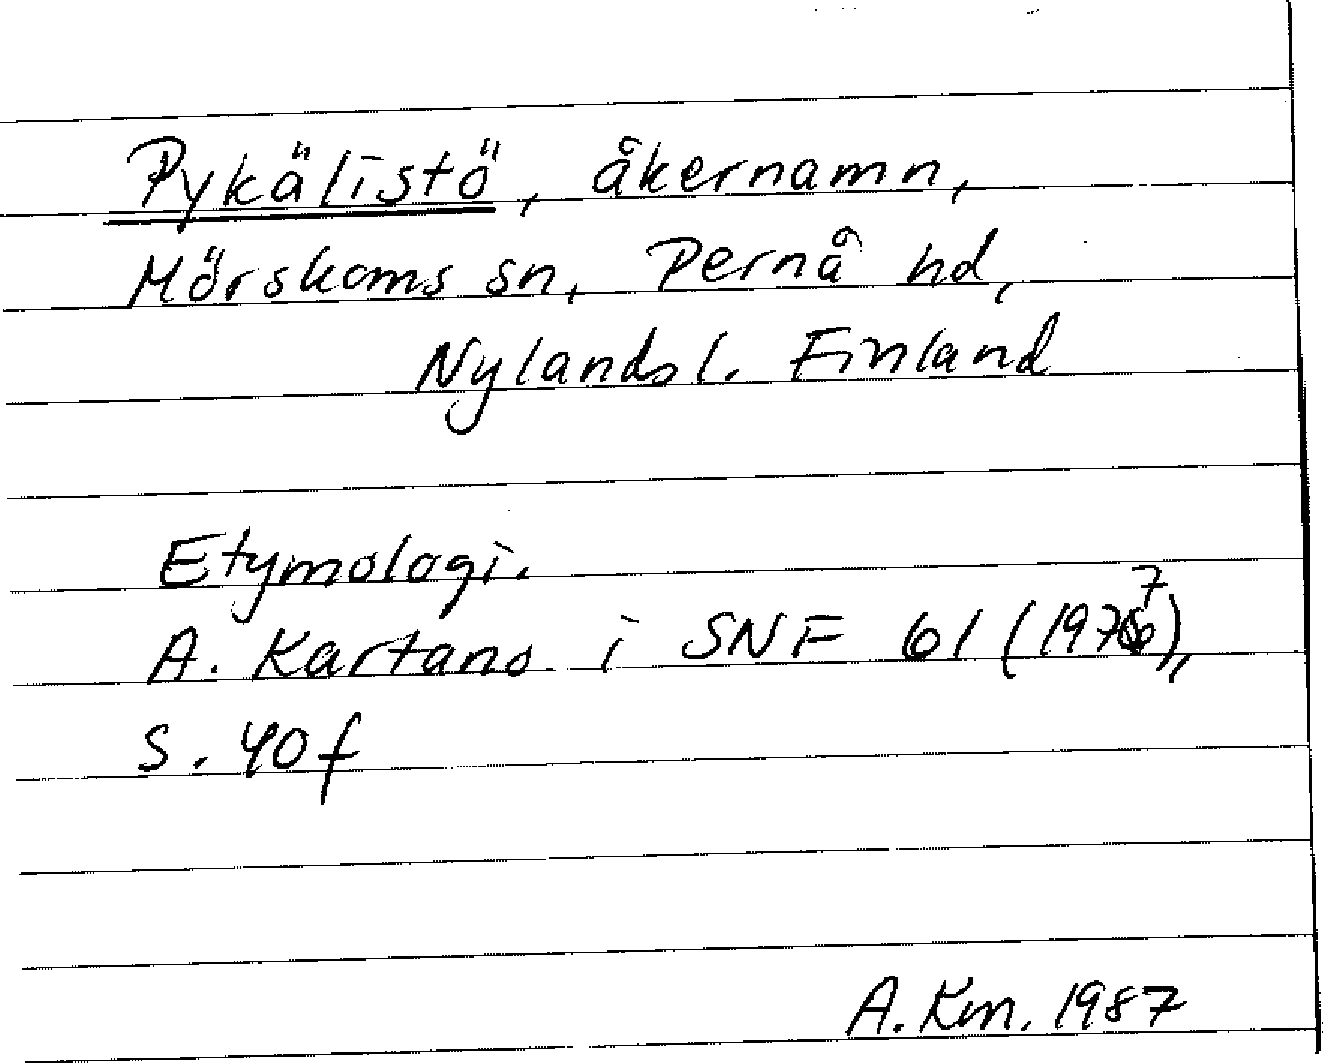 Pykälistö, åkernamn,
Mörskoms sn, Pernå hd,
Nylands l. Finland
Etymologi.
A. Kartano i SNF 61 (1977),
S. 40 f
A. Km. 1987